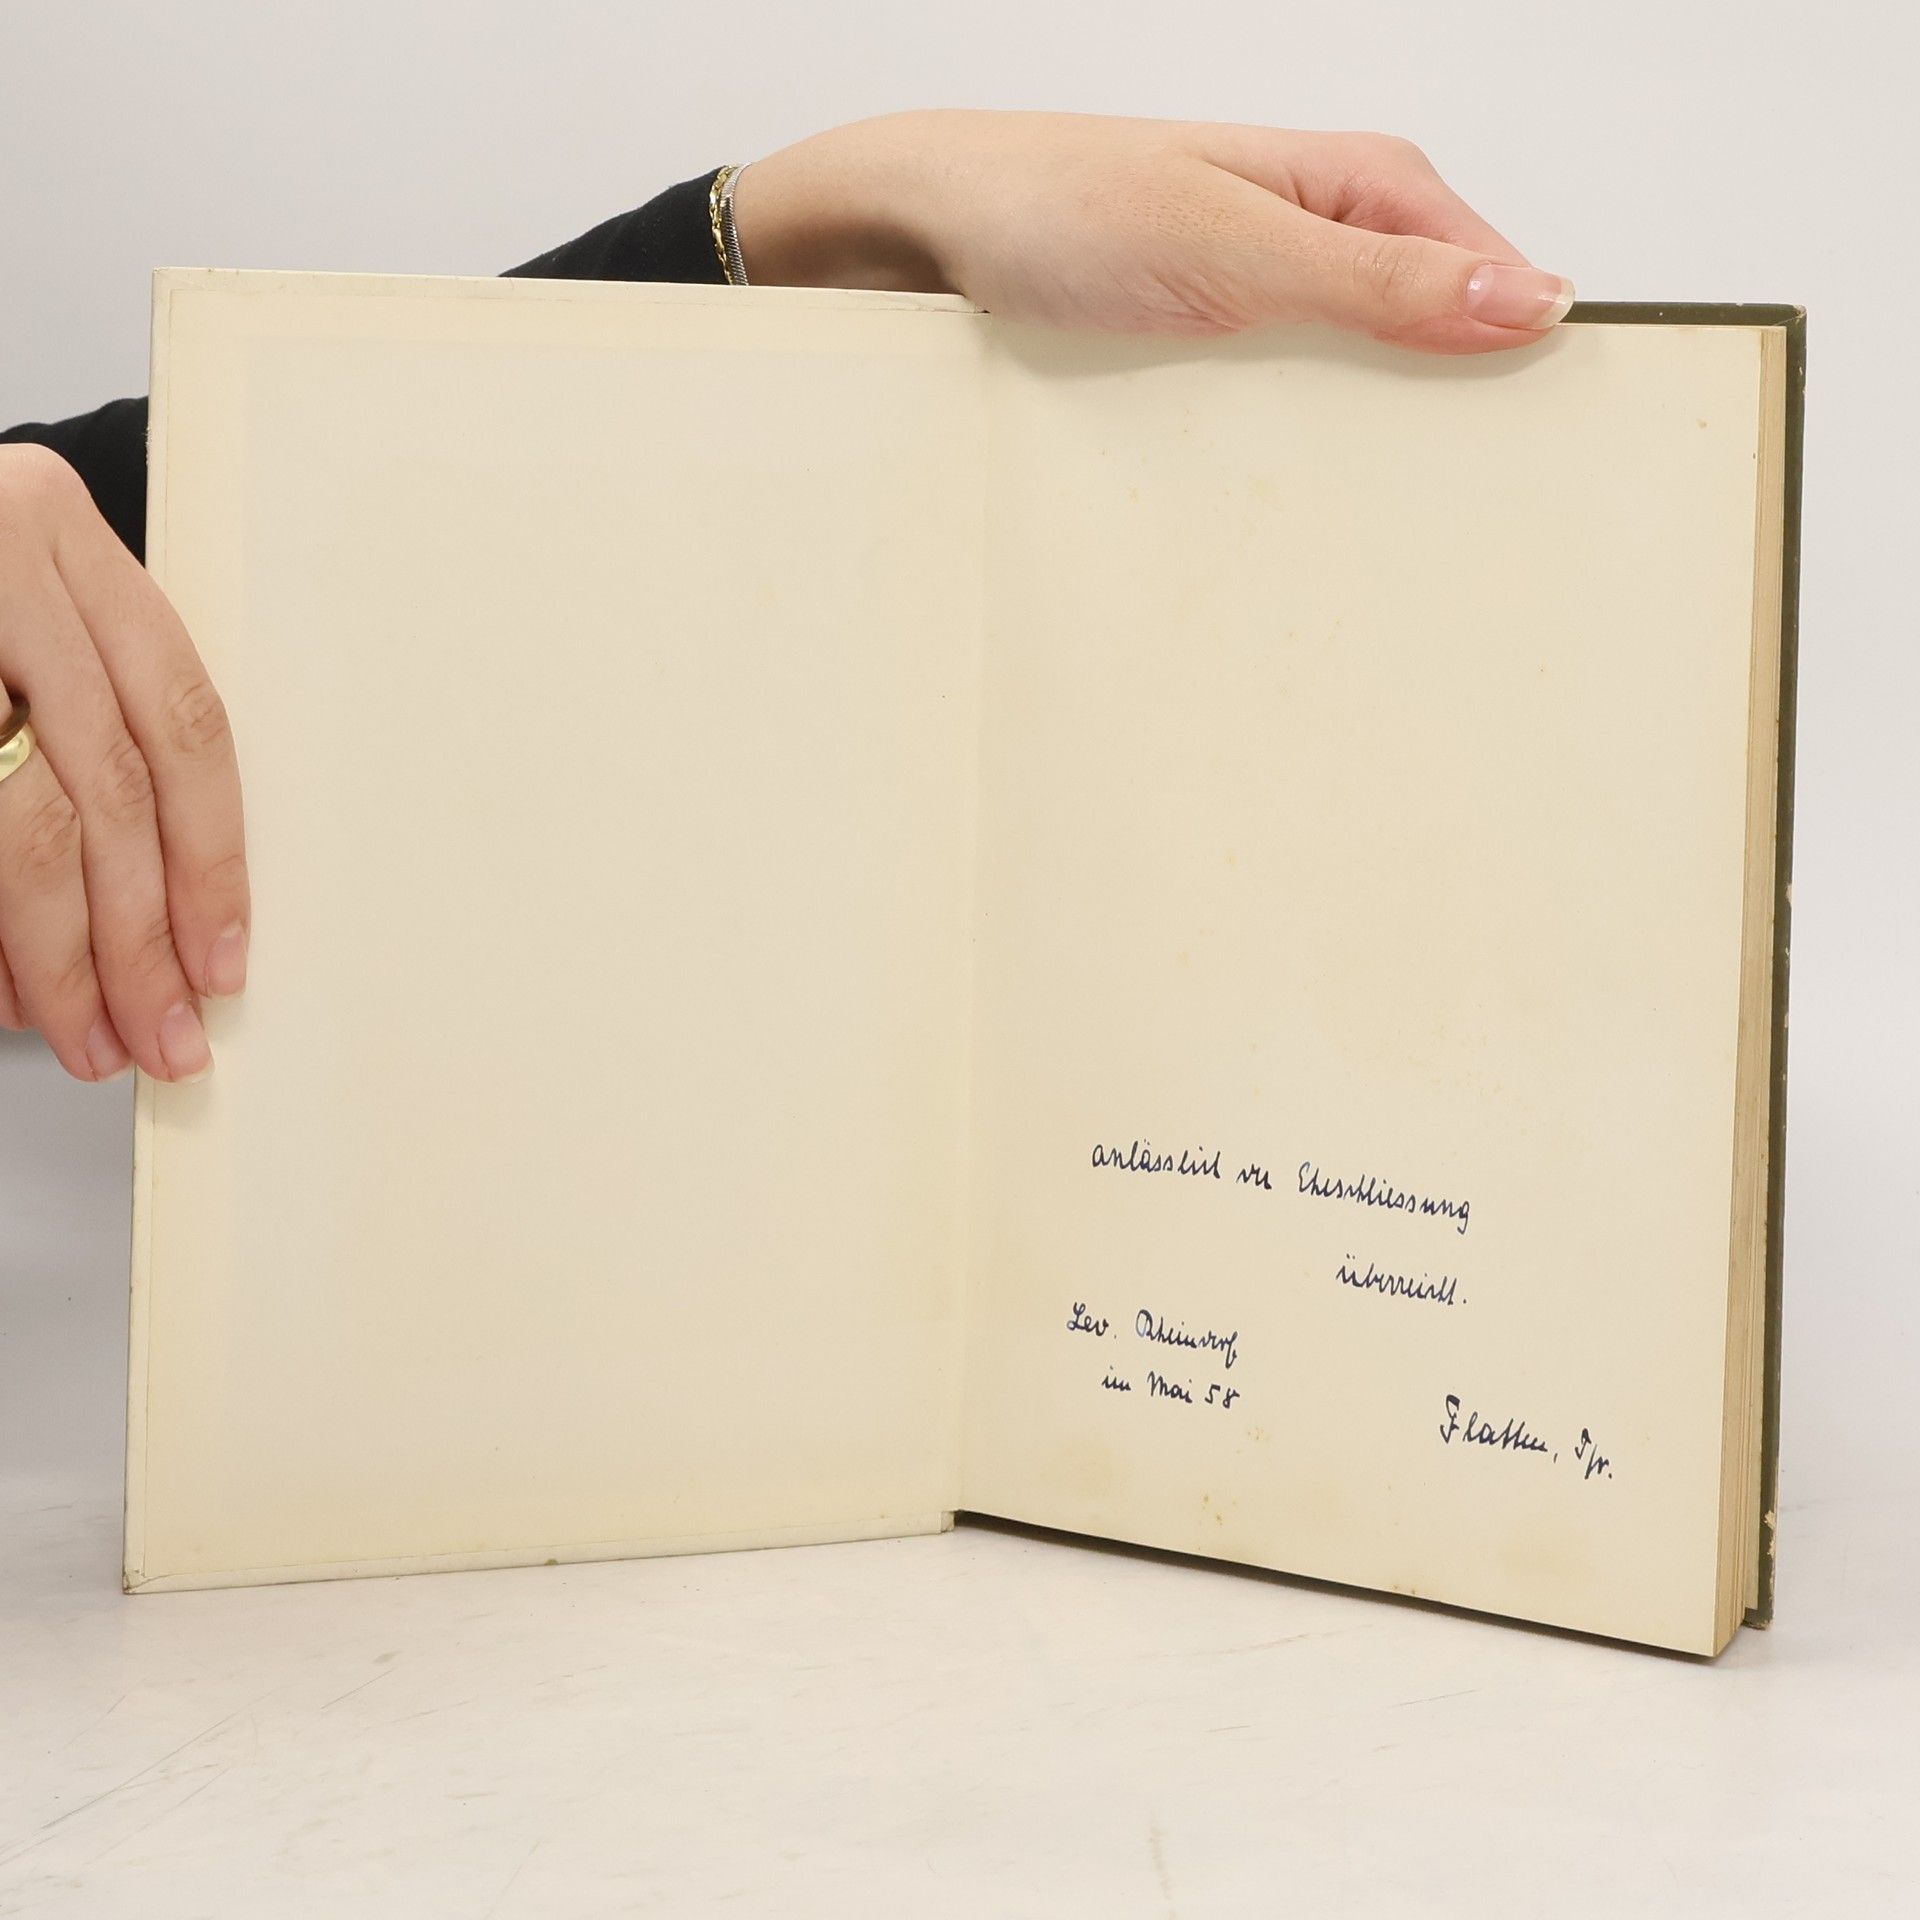 anlässlich der Eheschliessung
überreicht.
Lev. Rheindorf
im Mai 58
Flatten, Pfr.